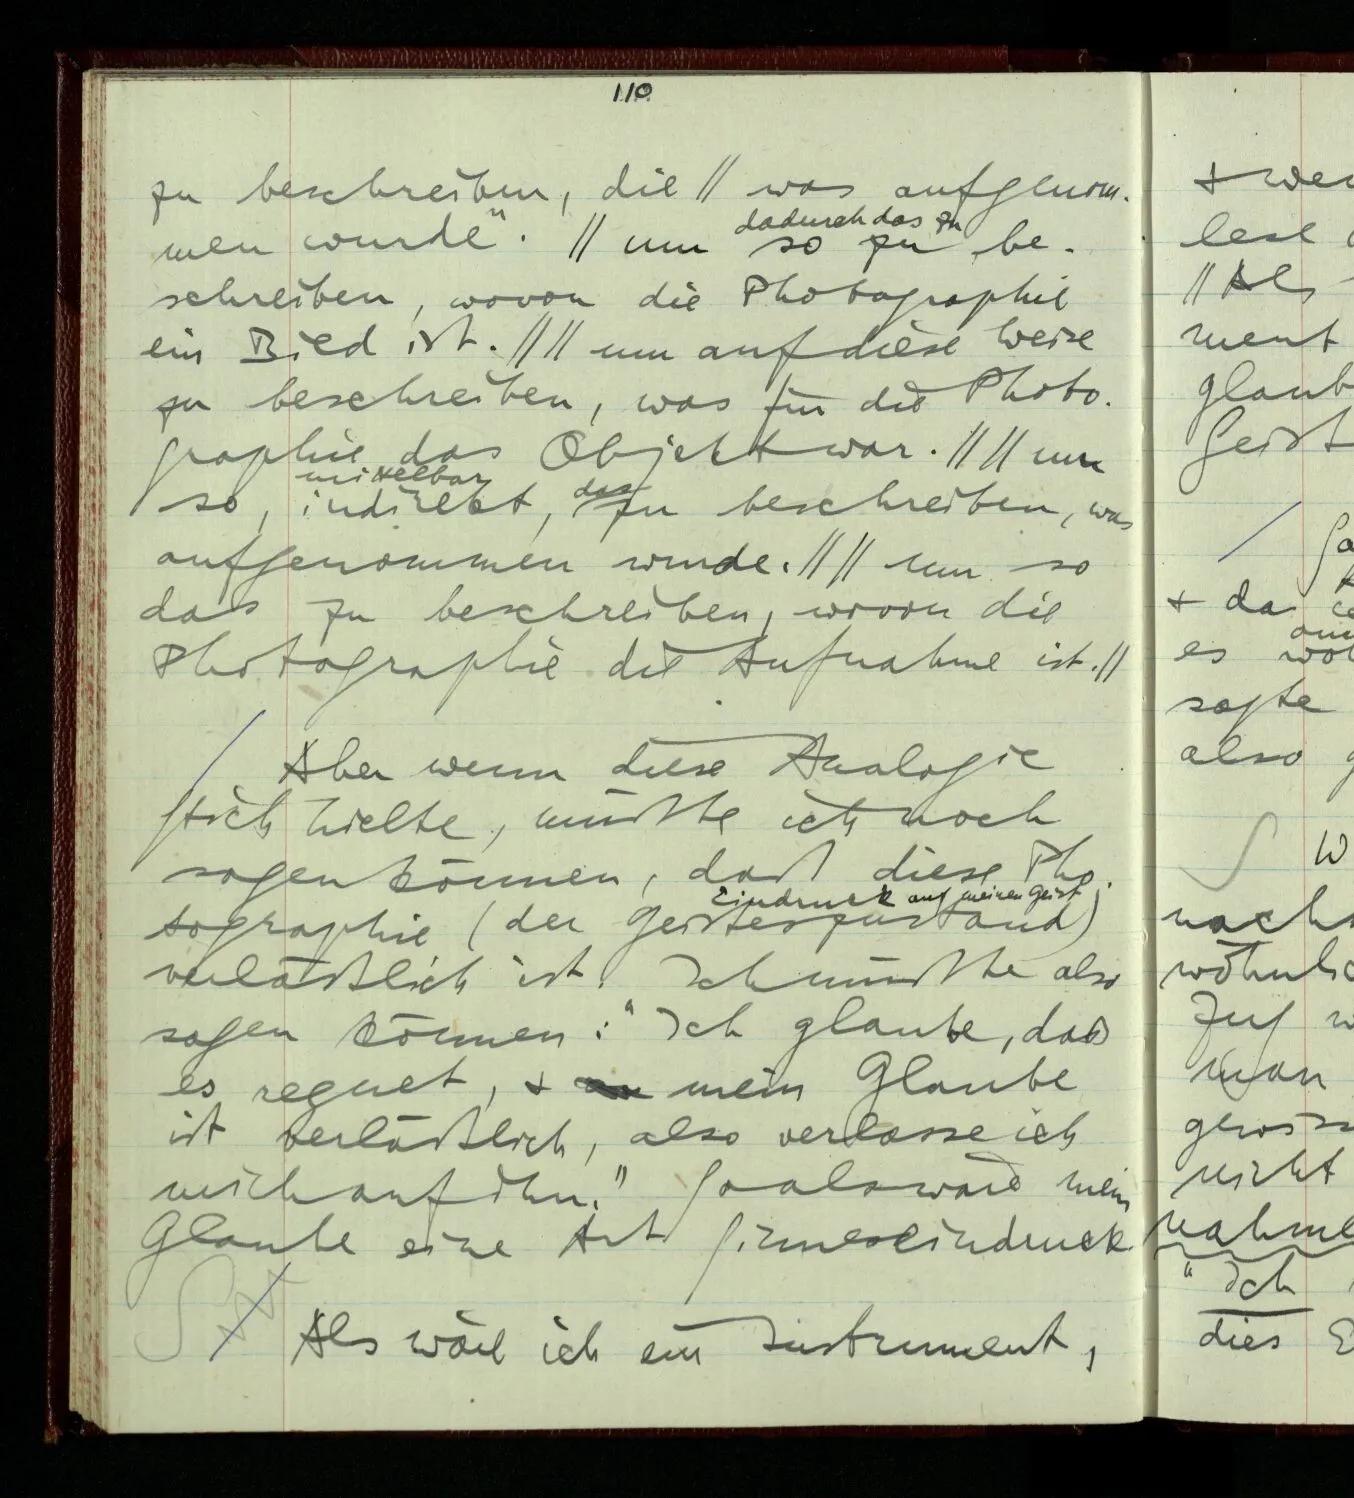 110
zu beschreiben, die // was aufgenom-
men wurde". // um so zu be-
dadurch das zu
schreiben, wovon die Photographie
ein Bild ist. // // um auf diese Weise
zu beschreiben, was für die Photo-
graphie das Objekt war. // // um
mittelbar
so, indirekt, das zu beschreiben, was
aufgenommen wurde. // // um so
das zu beschreiben, wovon die
Photographie die Aufnahme ist. //
/ Aber wenn diese Analogie
stich hielte, müßte ich noch
sagen können, daß diese Pho-
Eindruck auf meinen Geist
tographie (der Geisteszustand)
verläßlich ist. Ich müßte also
sagen können: "Ich glaube, daß
es regnet, + mein Glaube
ist verläßlich, also verlasse ich
mich auf ihn." So als wäre mein
Glaube eine Art Sinneseindruck.
S / Als wäre ich ein Instrument,
+ wen
lese
// Als
ment
glaub
Geist
/
+ da
es
sagte
also g
S W
nacht
wöhnlic
Zug w
man
gewiss
nicht
nahme
"Ich
dies E